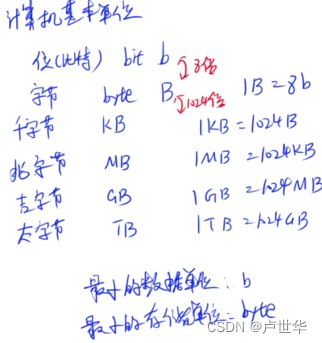 计算机基本单位
位(比特) bit b ↕8倍
字节 byte B 1B=8b
↕1024倍
千字节 KB 1KB=1024B
兆字节 MB 1MB=1024KB
吉字节 GB 1GB=1024MB
太字节 TB 1TB=1024GB
最小的数据单位：b
最小的存储单位=byte
CSDN @卢世华